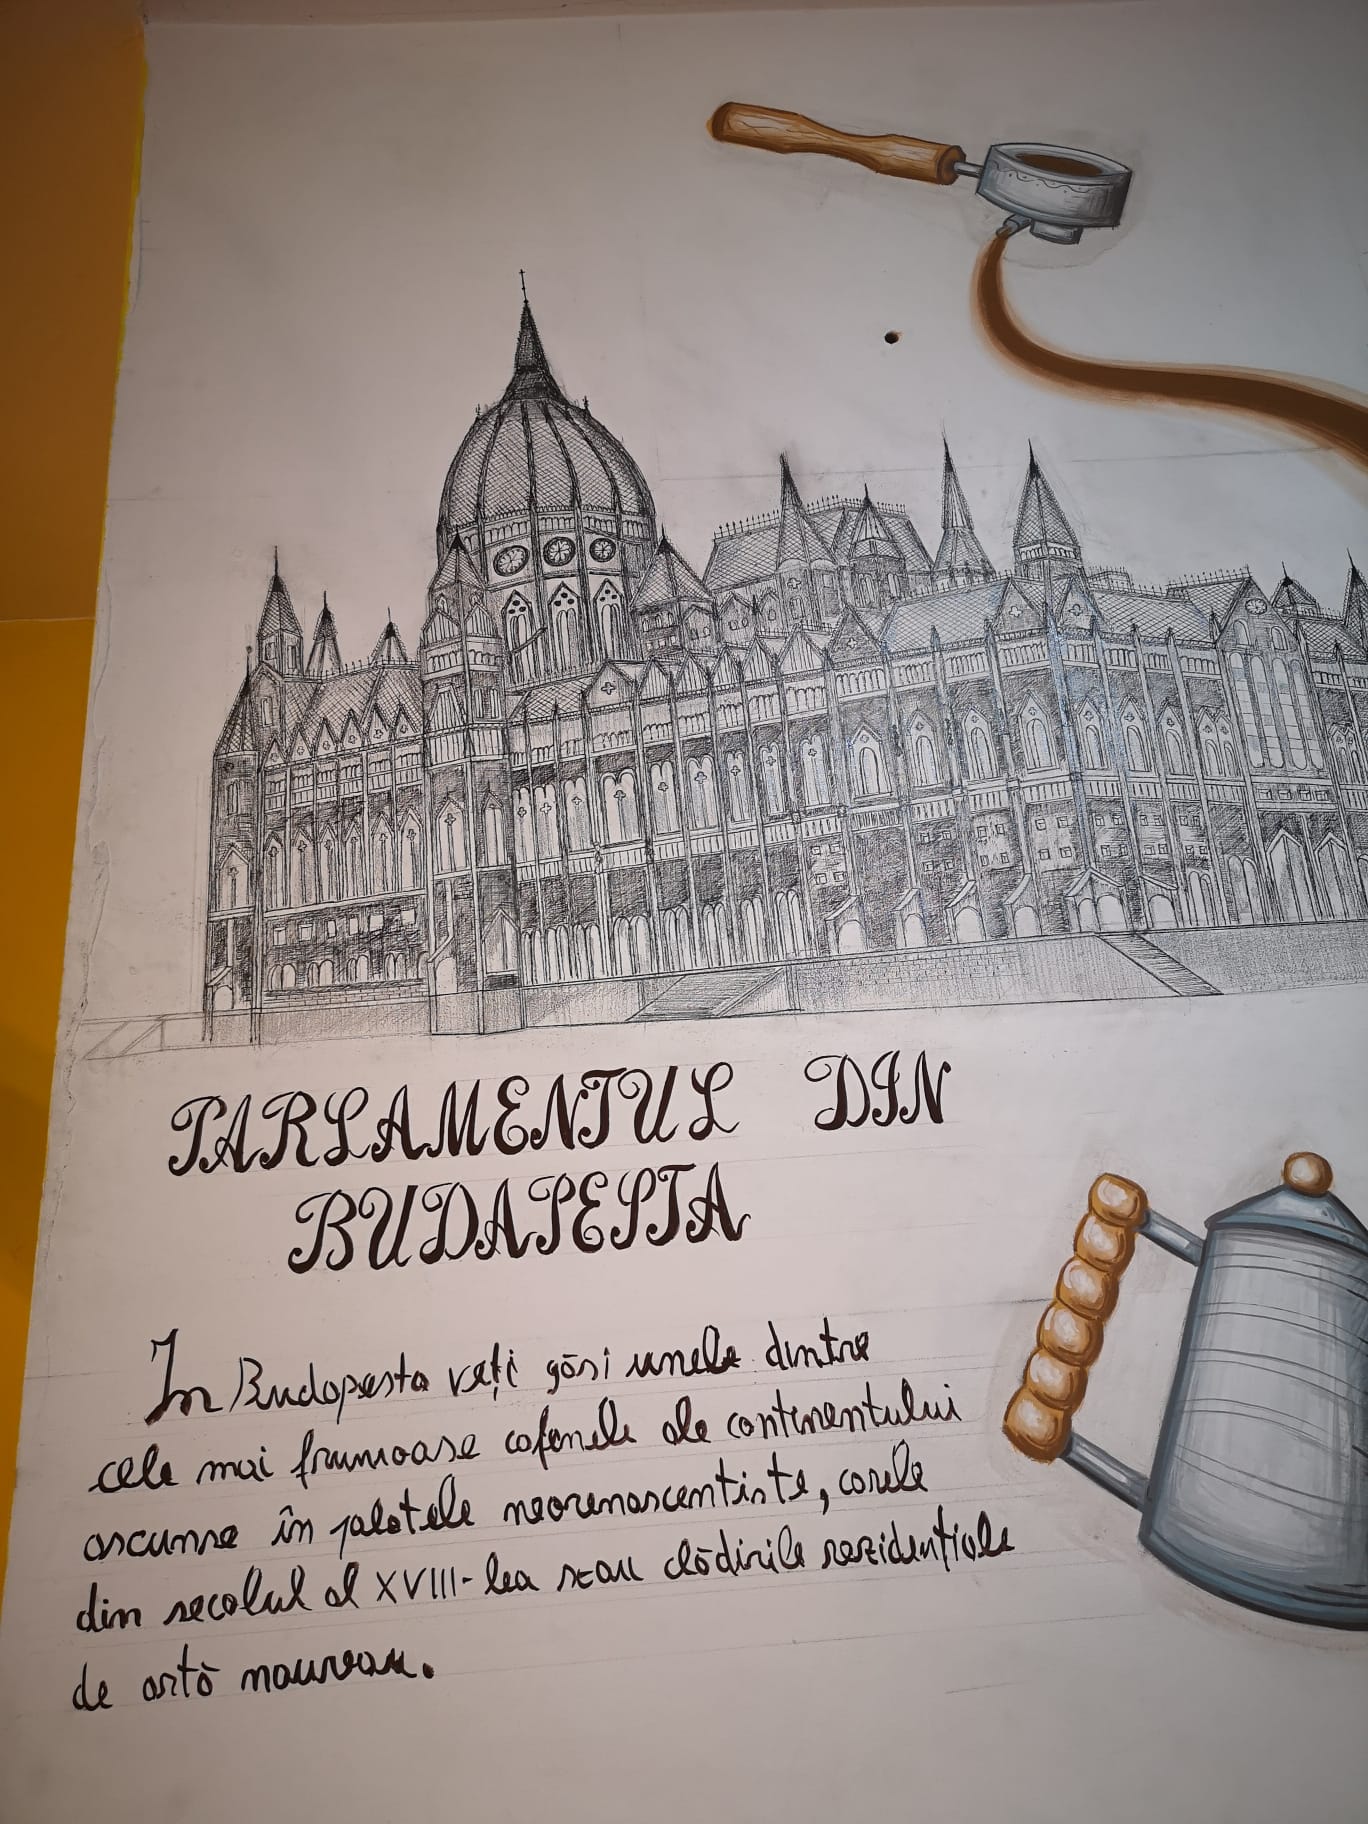 PARLAMENTUL DIN
BUDAPESTA
In Budapesta veți găsi unele dintre
cele mai frumoase cafenele ale continentului
ascunse în palatele neorenascentiste, casele
din secolul al XVIII-lea sau clădirile rezidențiale
de artă nouveau.